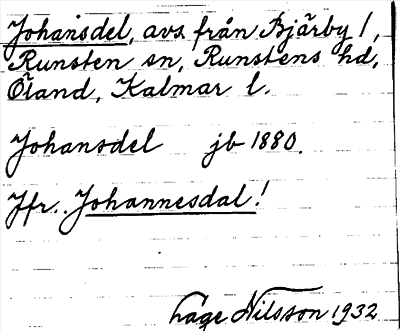 Johansdel, avs. från Bjärby 1,
Runsten sn, Runstens hd,
Öland, Kalmar l.
Johansdel jb 1880.
Jfr. Johannesdal!
Lage Nilsson 1932